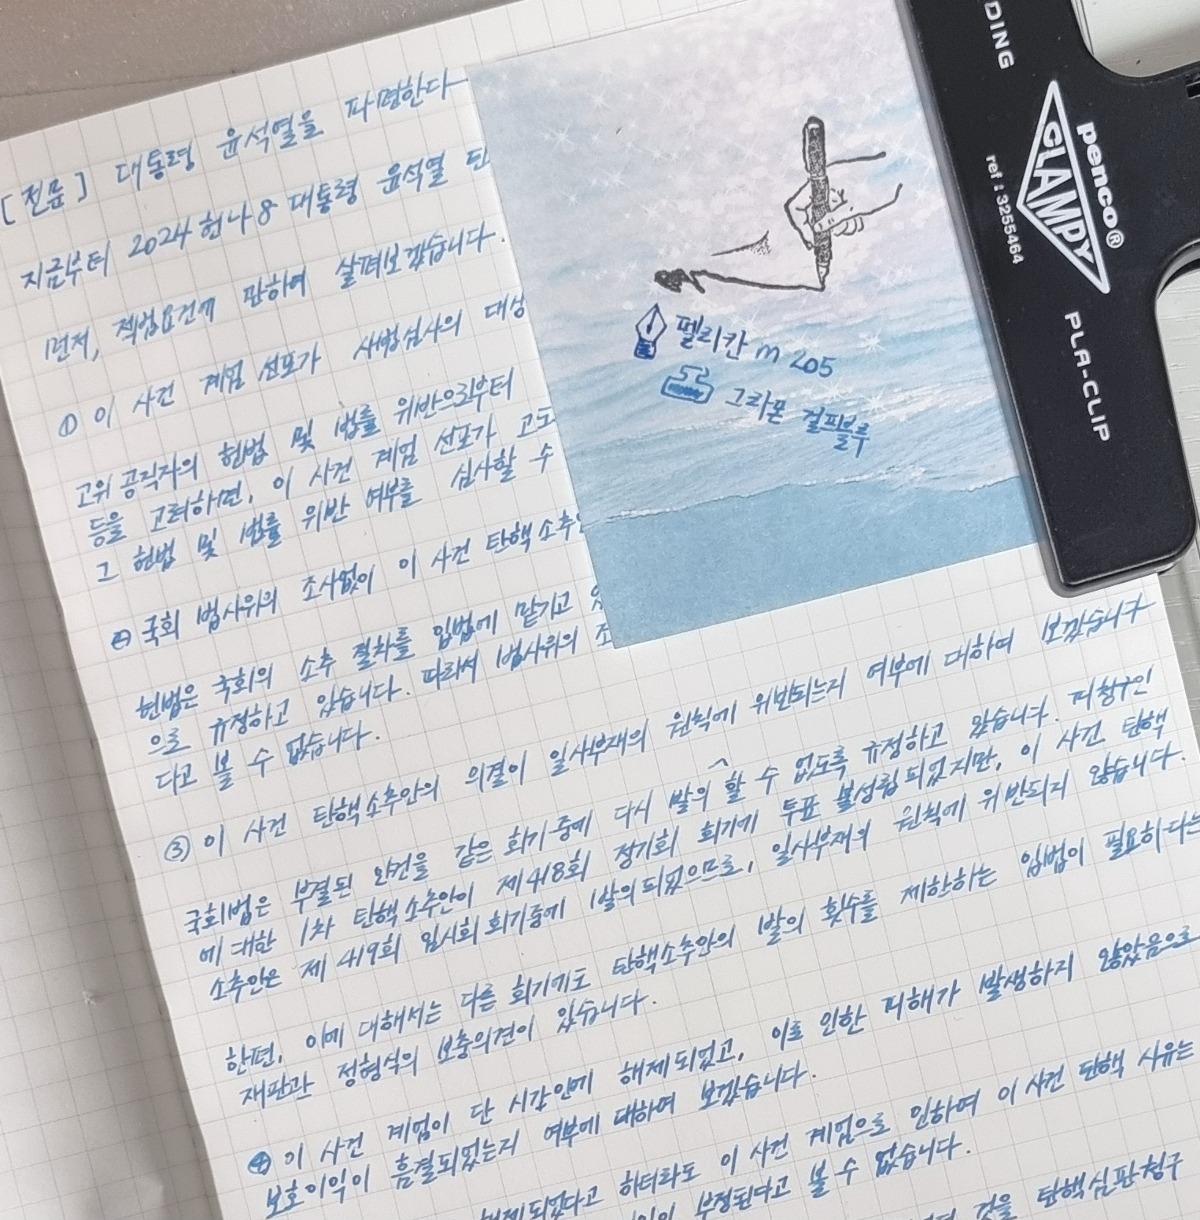 [전문] 대통령 윤석열을 파면한다
지금부터 2024헌나8 대통령 윤석열 탄
먼저, 적법요건에 관하여 살펴보겠습니다.
① 이 사건 계엄 선포가 사법심사의 대상
고위공직자의 헌법 및 법률 위반으로부터
등을 고려하면, 이 사건 계엄 선포가 고도
그 헌법 및 법률 위반 여부를 심사할 수
② 국회 법사위의 조사없이 이 사건 탄핵소추안
헌법은 국회의 소추 절차를 입법에 맡기고 있
으로 규정하고 있습니다. 따라서 법사위의 조
다고 볼 수 없습니다.
③ 이 사건 탄핵소추안의 의결이 일사부재의 원칙에 위반되는지 여부에 대하여 보겠습니다
국회법은 부결된 안건을 같은 회기중에 다시 발의^할 수 없도록 규정하고 있습니다. 피청구인
에 대한 1차 탄핵소추안이 제418회 정기회 회기에 투표 불성립되었지만, 이 사건 탄핵
소추안은 제419회 임시회 회기중에 발의되었으므로, 일사부재의 원칙에 위반되지 않습니다.
한편, 이에 대해서는 다른 회기에도 탄핵소추안의 발의 횟수를 제한하는 입법이 필요하다는
재판관 정형식의 보충의견이 있습니다.
④ 이 사건 계엄이 단 시간안에 해제되었고, 이로 인한 피해가 발생하지 않았음으로
보호이익이 흠결되었는지 여부에 대하여 보겠습니다.
해제되었다고 하더라도 이 사건 계엄으로 인하여 이 사건 탄핵 사유는
부정된다고 볼 수 없습니다.
것을 탄핵심판청구
펠리칸 m 205
그라폰 걸프블루
penco®
CLAMPY
ref : 3255464
PLA-CLIP
DING